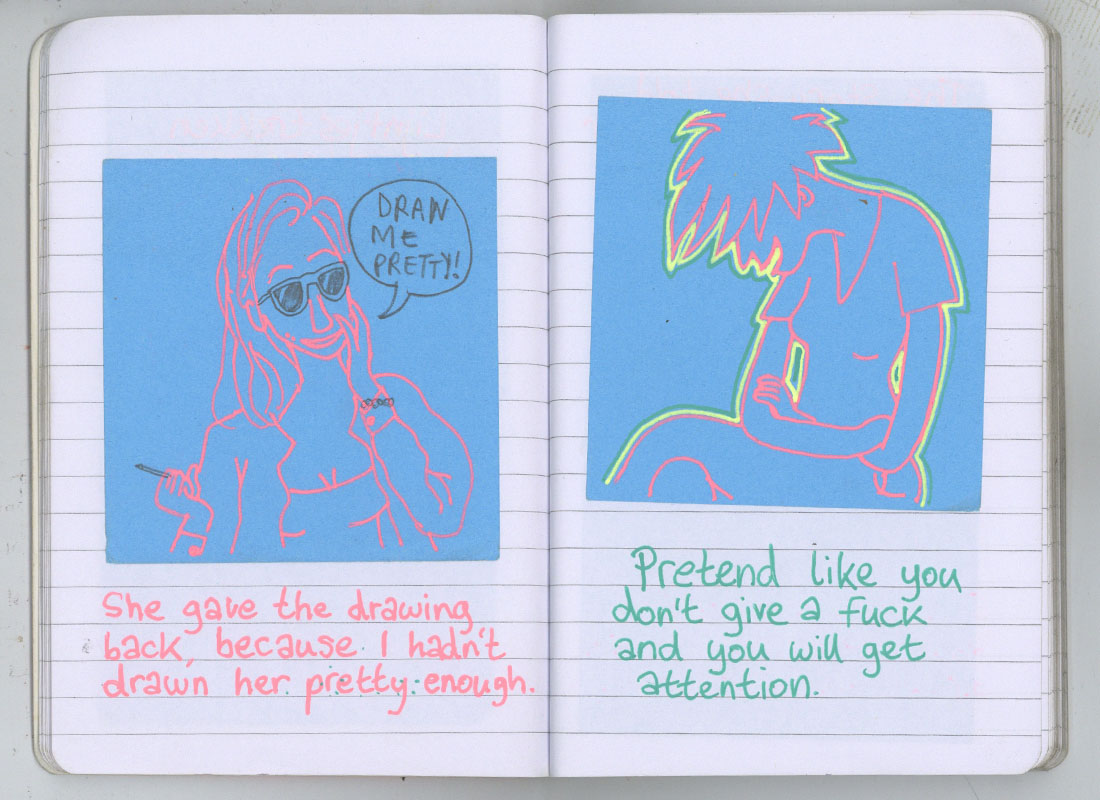 DRAW
ME
PRETTY!
She gave the drawing
back, because I hadn't
drawn her pretty enough.
Pretend like you
don't give a fuck
and you will get
attention.